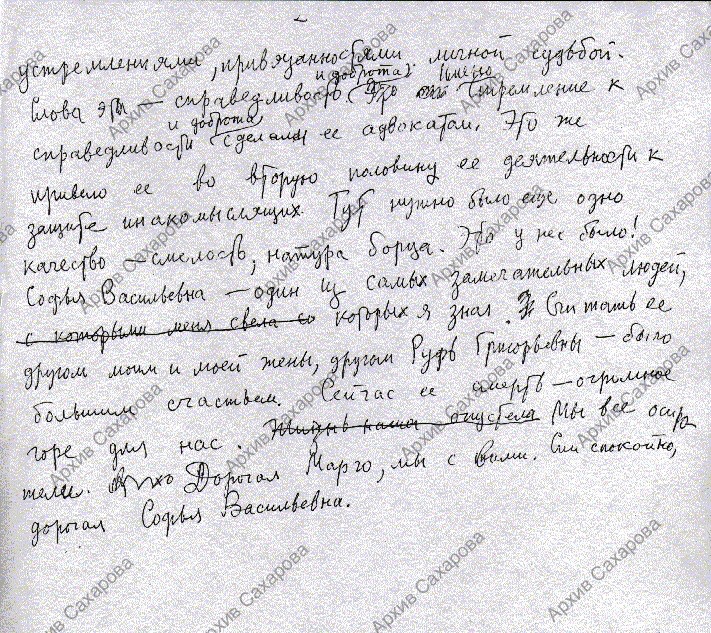 устремлениями, привязанностями личной судьбой.
и доброта. Именно
Слова эти — справедливость. Это стремление к
и доброта
справедливости сделали ее адвокатом. Это же
привело ее во вторую половину ее деятельности к
защите инакомыслящих. Тут нужно было еще одно
качество — смелость, натура борца. Это у нее было!
Софья Васильевна — один из самых замечательных людей,
с которыми меня свела со которых я знал. Считать ее
другом моим и моей жены, другом Руфь Григорьевны — было
большим счастьем. Сейчас ее смерть — огромное
горе для нас. Жизнь наша опустела Мы все осиро
тели. Дорогая Марго, мы с Вами. Спи спокойно,
дорогая Софья Васильевна.
Архив Сахарова